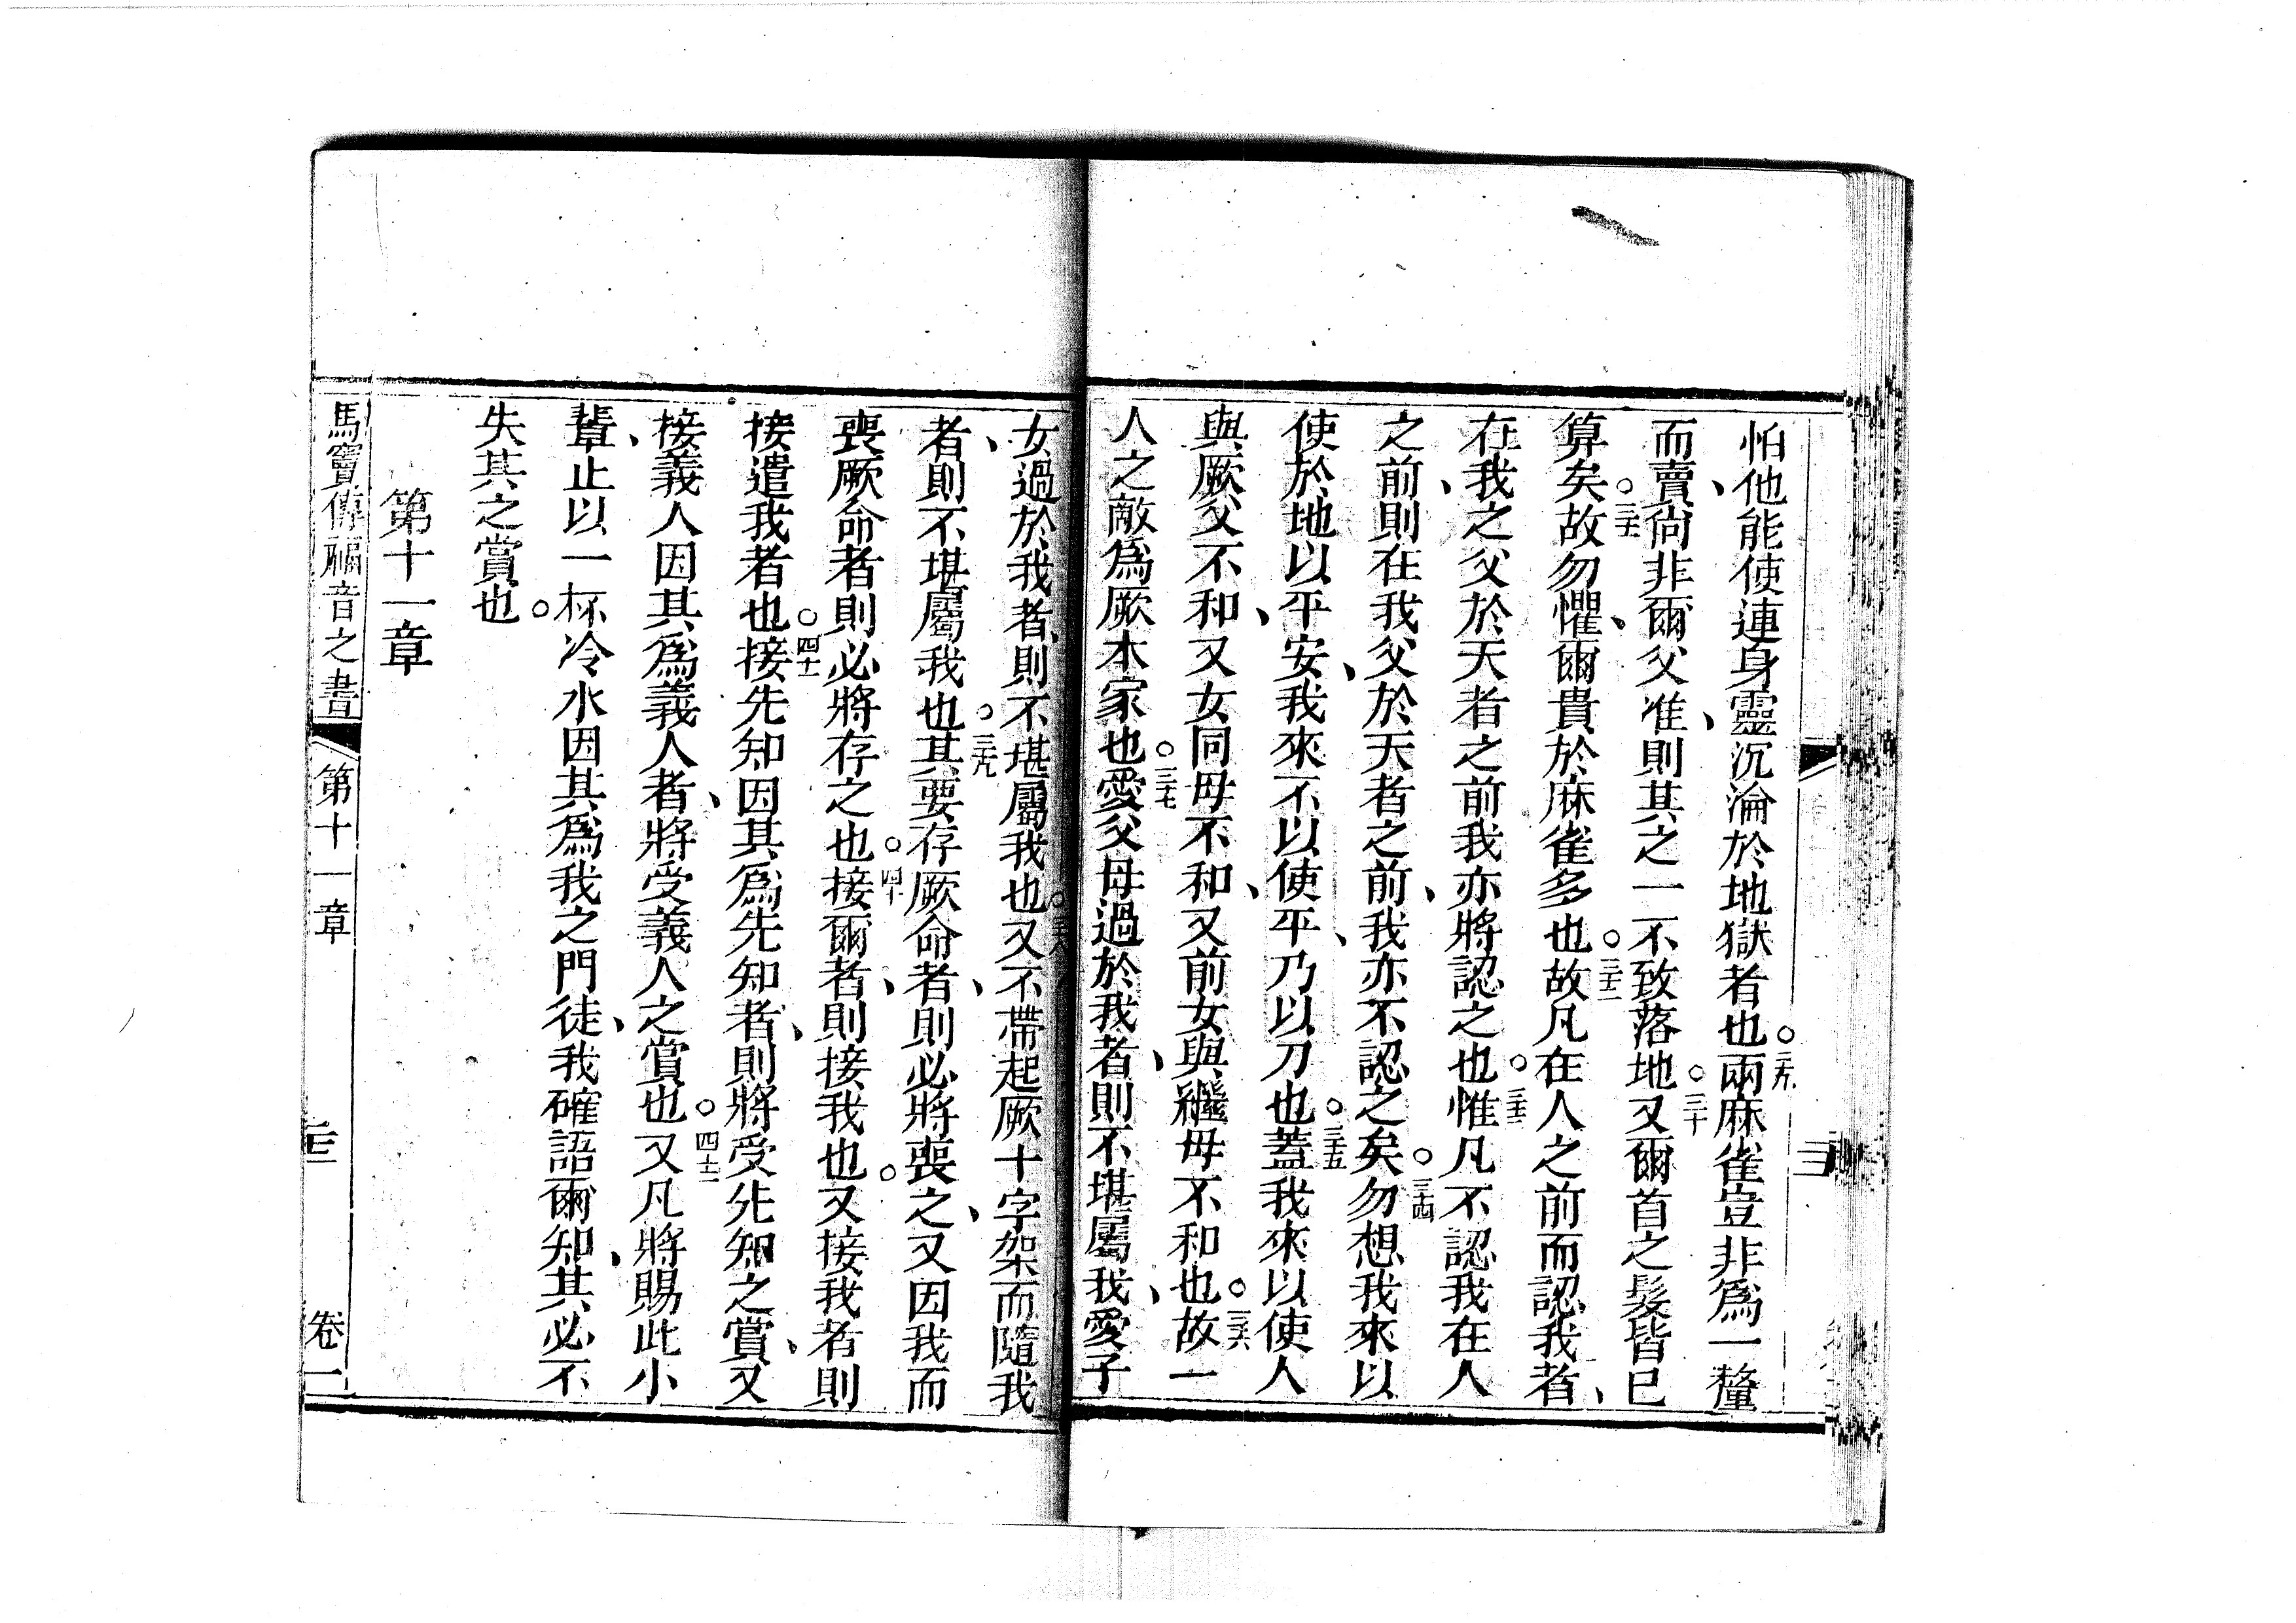 怕他能使連身靈沉淪於地獄者也。二九兩麻雀豈非爲一釐
而賣、尙非爾父准、則其之一不致落地。三十又爾首之髮皆已
算矣。三十一故勿懼、爾貴於麻雀多也。三十二故凡在人之前而認我者、
在我之父於天者之前我亦將認之也。三十三惟凡不認我在人
之前、則在我父於天者之前、我亦不認之矣。三十四勿想我來以
使於地以平安、我來不以使平、乃以刀也。三十五蓋我來以使人
與厥父不和、又女同母不和、又前女與繼母不和也。三十六故一
人之敵爲厥本家也。三十七愛父母過於我者、則不堪屬我、愛子
女過於我者、則不堪屬我也。三十八又不帶起厥十字架而隨我
者、則不堪屬我也。三十九其要存厥命者、則必將喪之、又因我而
喪厥命者則必將存之也。四十接爾者、則接我也。又接我者則
接遣我者也。四十一接先知因其爲先知者、則將受先知之賞、又
接義人因其爲義人者、將受義人之賞也。四十二又凡將賜此小
輩、止以一杯冷水因其爲我之門徒、我確語爾知、其必不
失其之賞也。
第十一章
馬竇傳福音之書 第十一章 卷一